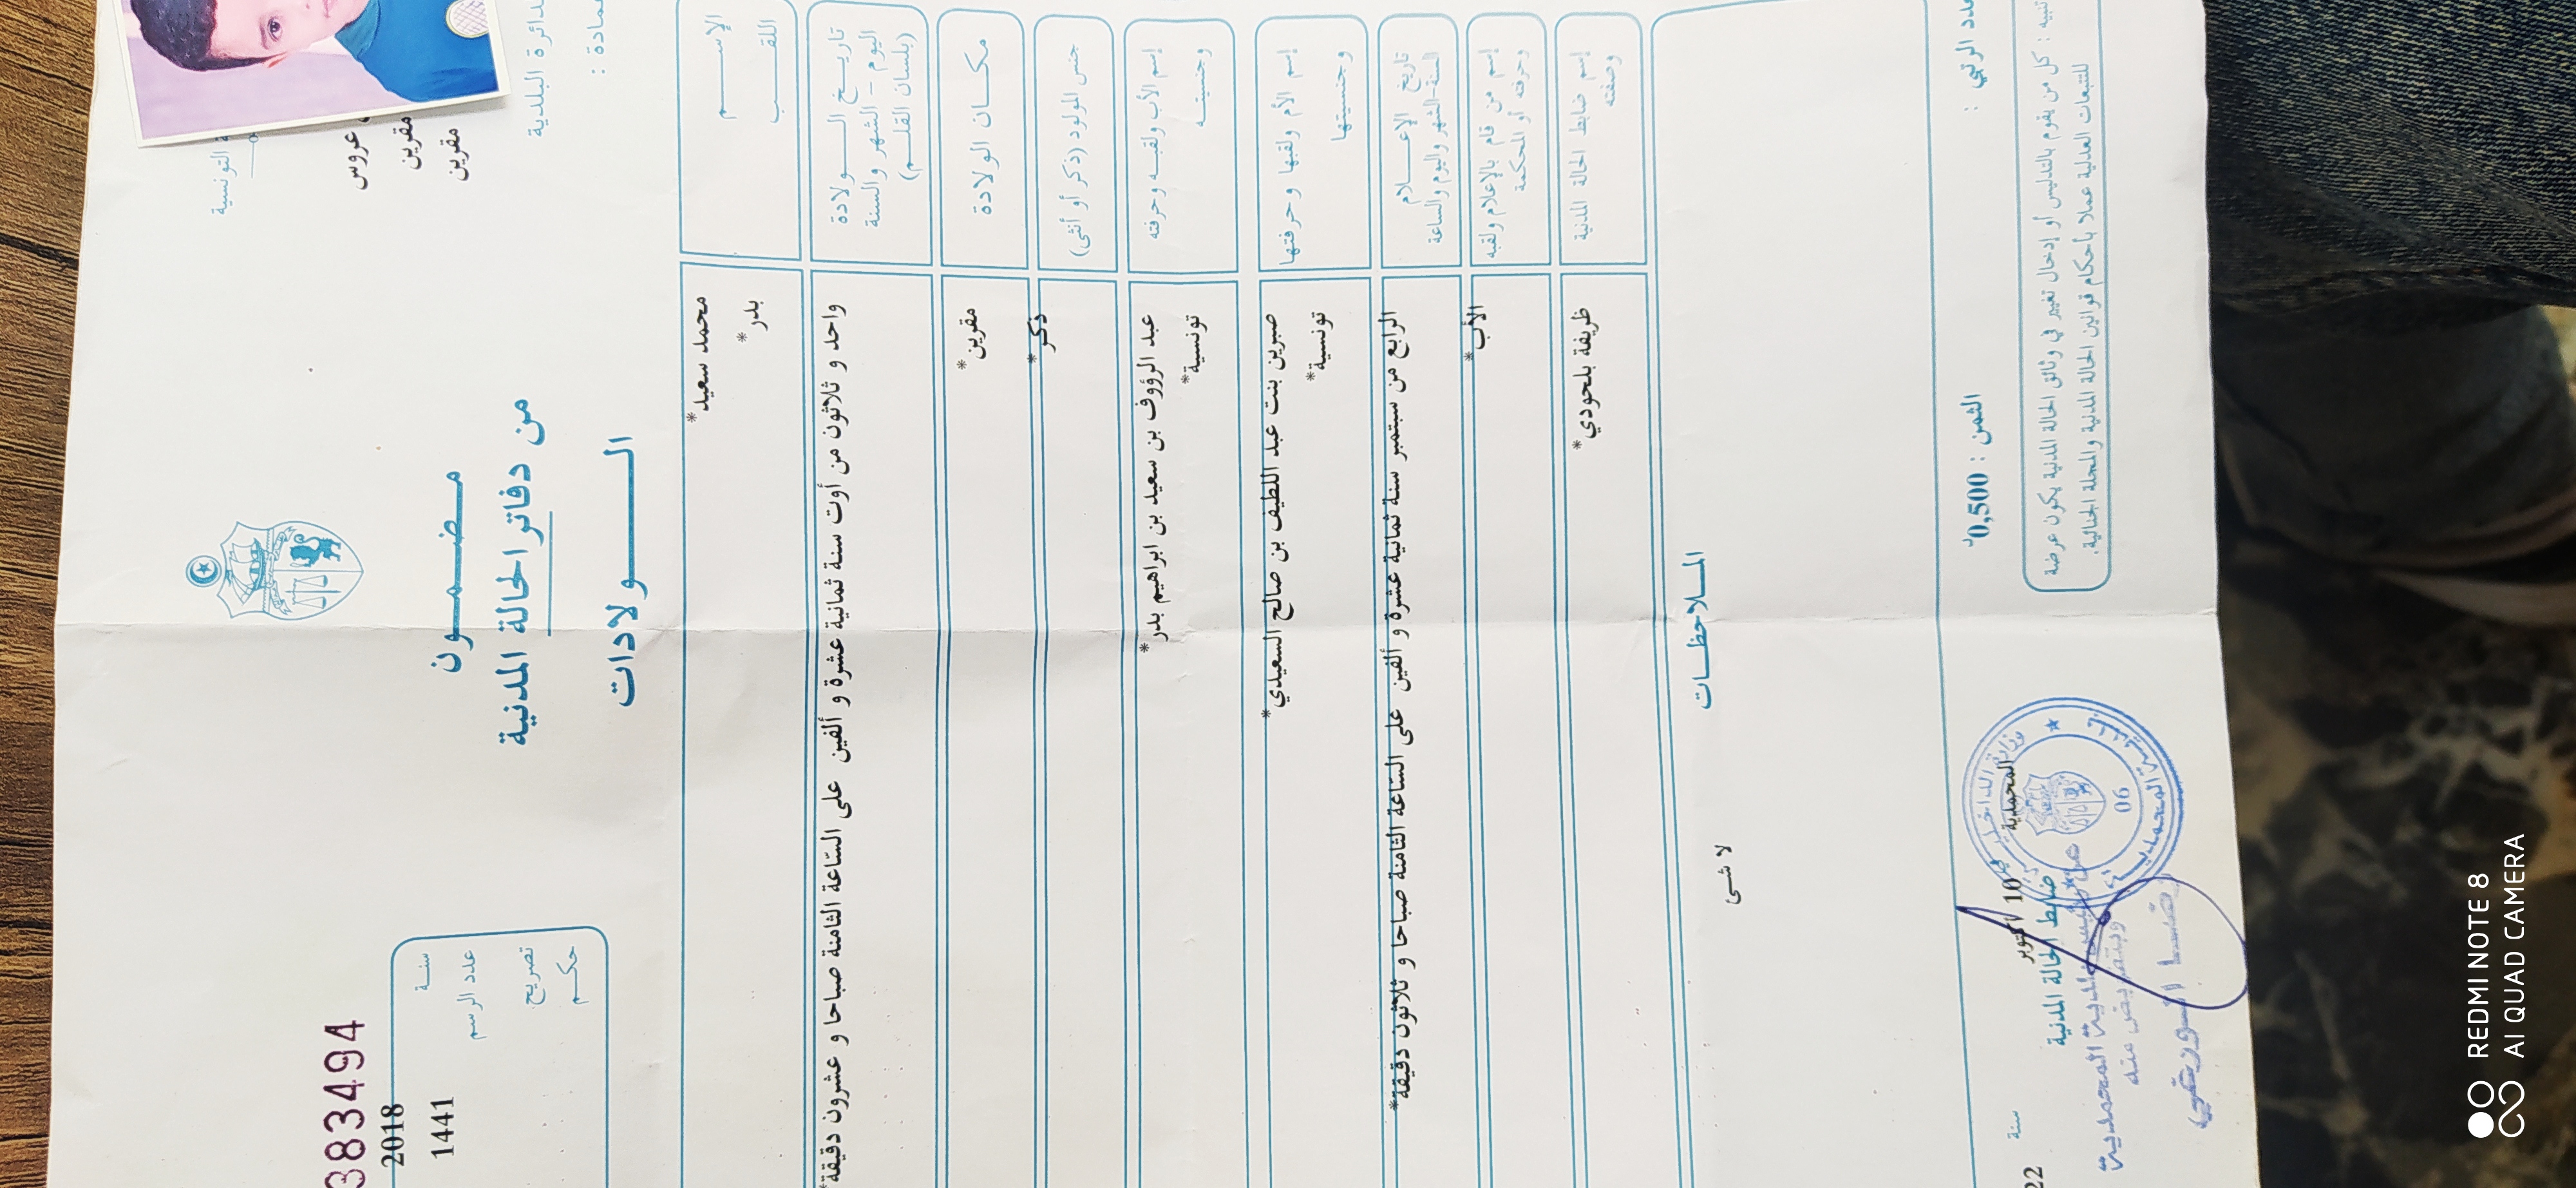 التونسية
عروس
مقرين
مقرين
دائرة البلدية
مادة :
مضمون
من دفاتر الحالة المدنية
الولادات
383494
سنة 2018
عدد الرسم 1441
تصريح
حكم
الإسم محمد سعيد*
اللقب بدر*
تاريخ الولادة
اليوم - الشهر والسنة
(بلسان القلم)
واحد و ثلاثون من أوت سنة ثمانية عشرة و ألفين على الساعة الثامنة صباحا و عشرون دقيقة*
مكان الولادة مقرين*
جنس المولود (ذكر أو أنثى) ذكر*
إسم الأب ولقبه وحرفته عبد الرؤوف بن سعيد بن ابراهيم بدر*
وجنسيته تونسية*
إسم الأم ولقبها وحرفتها صبرين بنت عبد اللطيف بن صالح السعيدي*
وجنسيتها تونسية*
تاريخ الإعلام
السنة-الشهر واليوم والساعة
الرابع من سبتمبر سنة ثمانية عشرة و ألفين على الساعة الثامنة صباحا و ثلاثون دقيقة*
إسم من قام بالإعلام ولقبه
وحرفته أو المحكمة
الأب*
إسم ضابط الحالة المدنية
وصفته
ظريفة بلحودي*
الملاحظات
لا شى
عدد الرتبي :
الثمن : 0,500د
تنبيه : كل من يقوم بالتدليس أو إدخال تغيير في وثائق الحالة المدنية يكون عرضة
للتتبعات العدلية عملا بأحكام قوانين الحالة المدنية والمجلة الجنائية.
المحمدية
10 اكتوبر سنة 22
ضابط الحالة المدنية
وزارة الداخلية
06
بلدية المحمدية
وبتفويض منه
REDMI NOTE 8
AI QUAD CAMERA